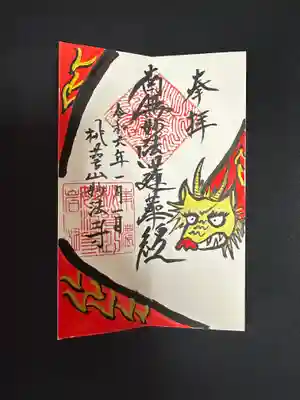 奉拝
南無妙法蓮華経
令和六年一月一日
妙法寺